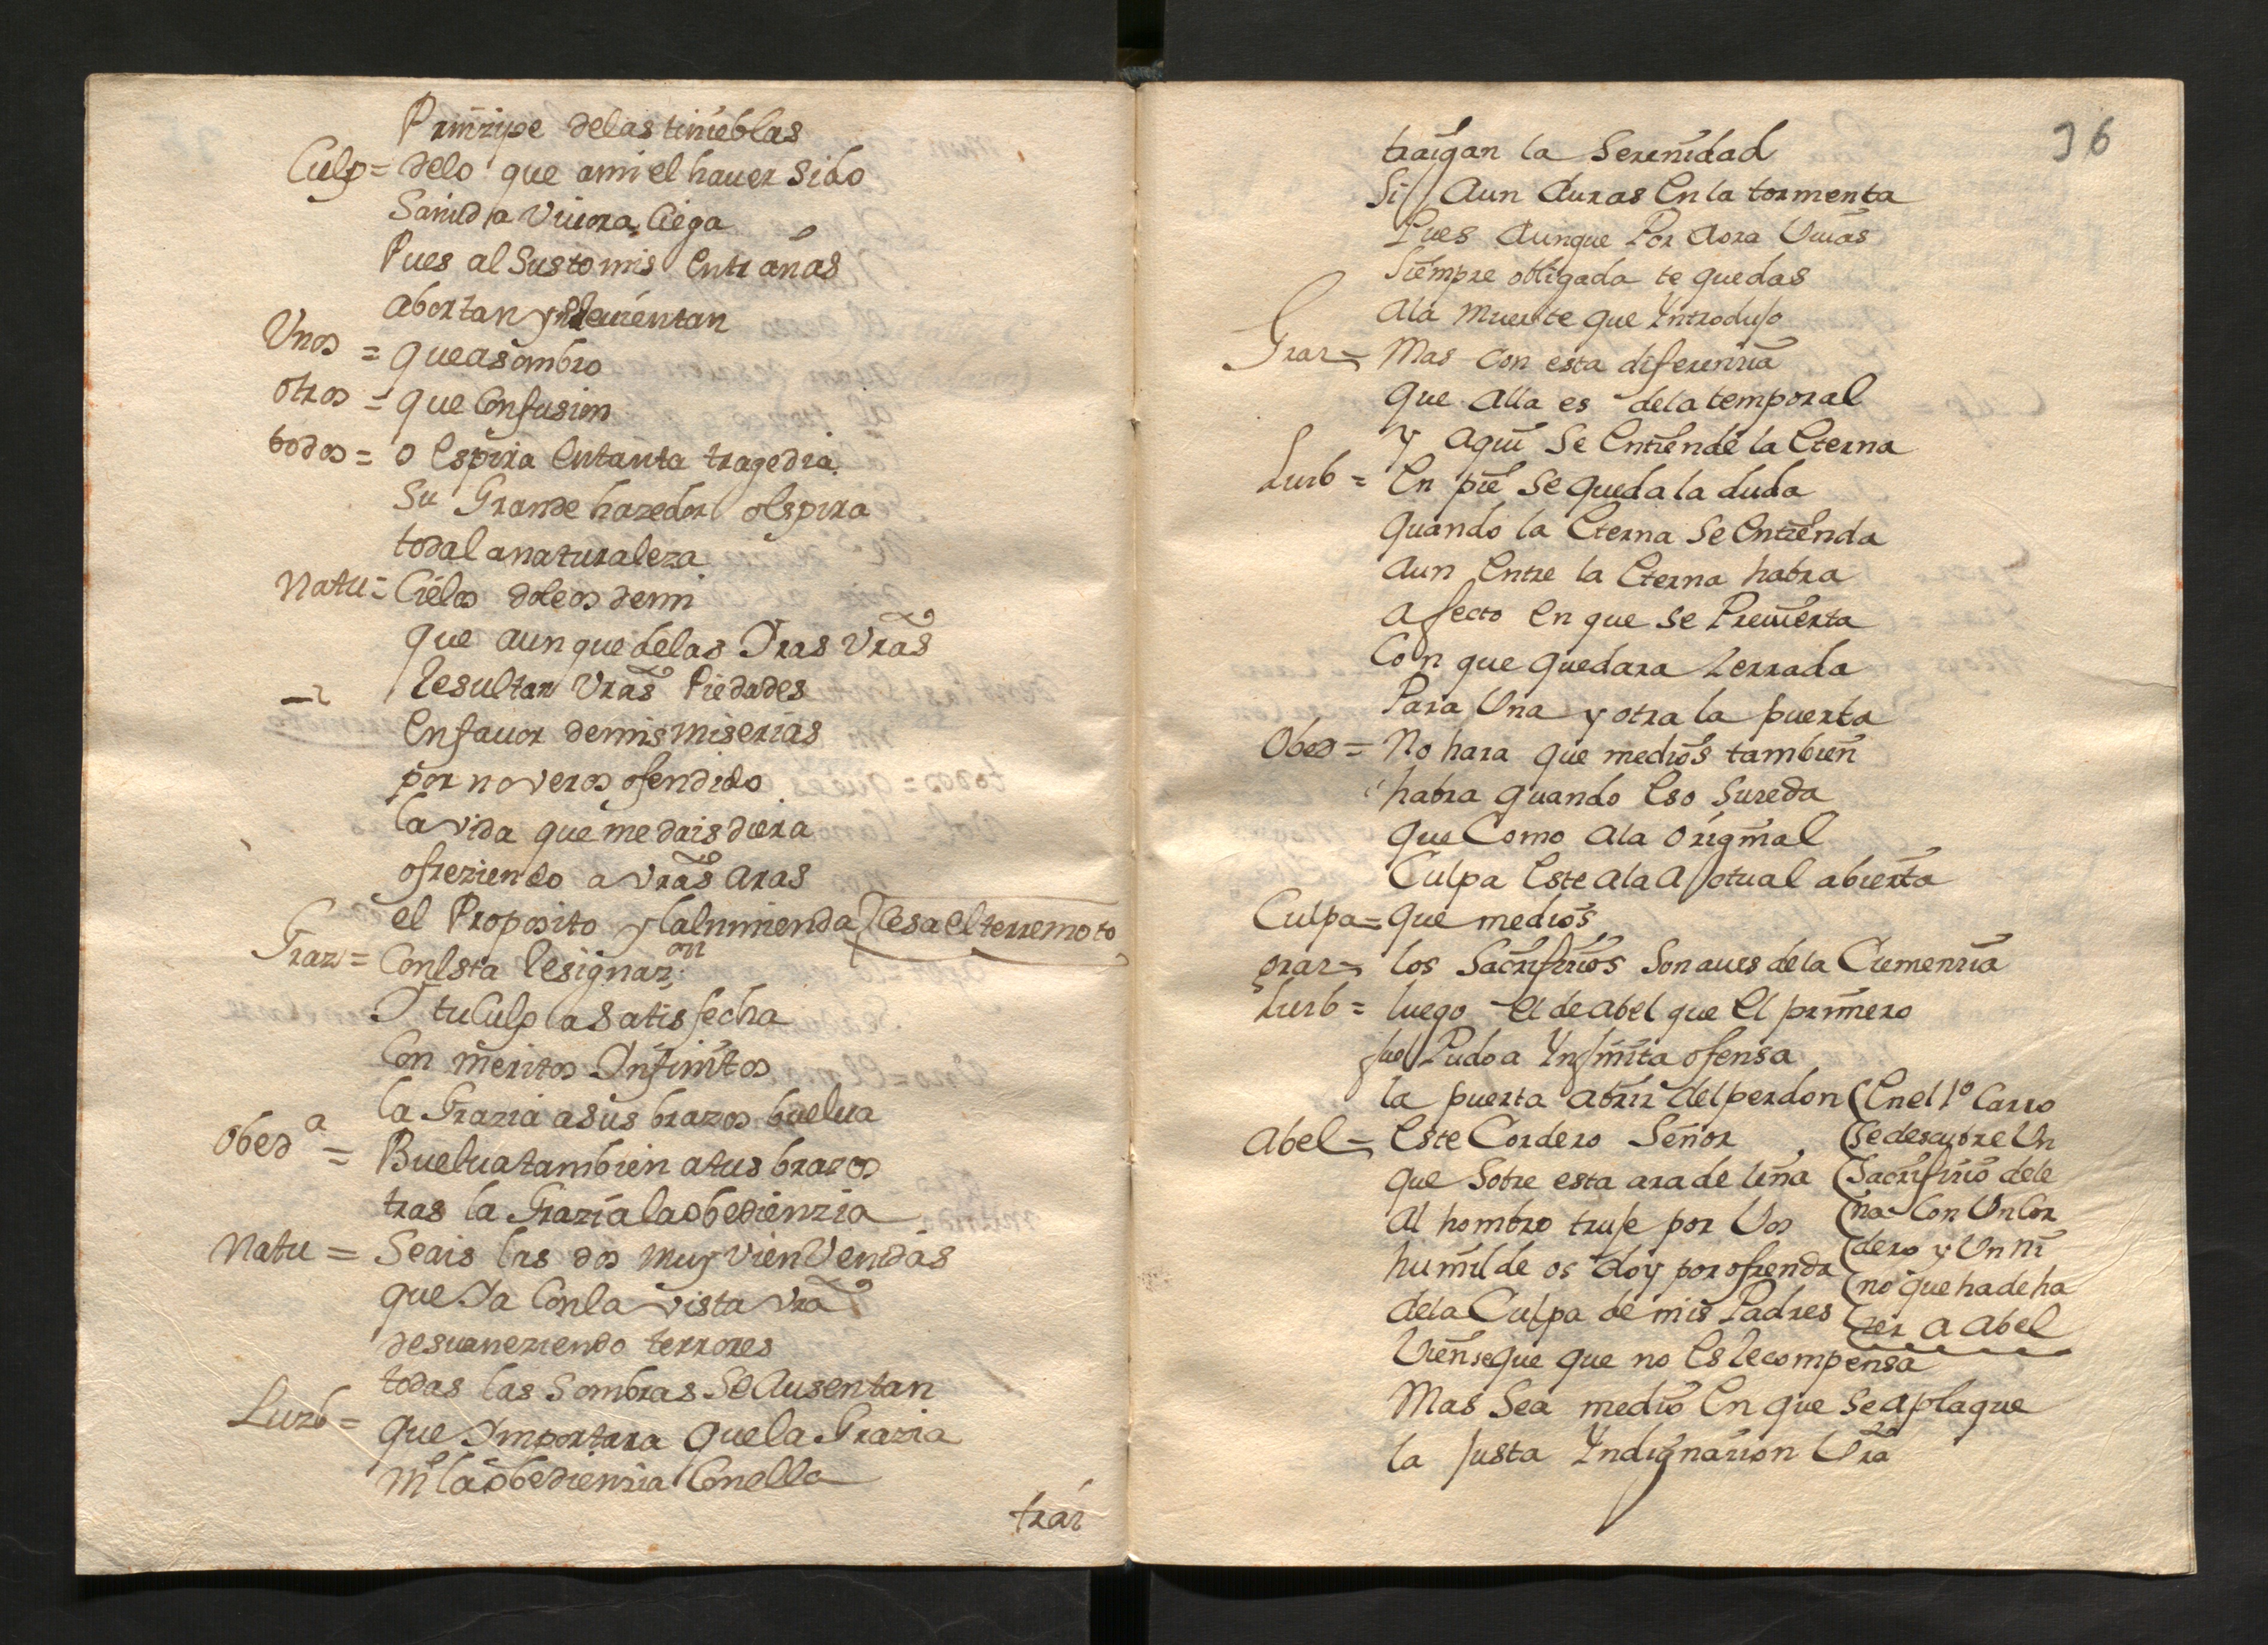 Prinzipe delas tinieblas
Culp = delo que ami el hauer sido
Sañuda viuora Ciega
Pues al Susto mis entrañas
abortan y Reuientan
Vnos = que asombro
otros = que Confusion
todos = o espira entanta tragedia
Su Grande hazedor o espira
toda la naturaleza
Natu = Cielos doleos demi
que aun que delas Yras Vrãs
Resultan Vrãs Piedades
en fauor demis miserias
por no veros ofendido
la vida que me dais diera
ofreziendo a vrãs aras
el Proposito y la enmienda Cesa el terremoto
Graz = Con esta Resignaz.on
Y tu Culpa Satisfecha
Con meritos Ynfinitos
la Grazia a sus brazos buelua
obed.a = Buelua tambien atus brazos
tras la Grazia la obedienzia
Natu = Seais las dos muy vien Venidas
que Ya Con la vista vrã
desuaneziendo terrores
todas las Sombras Se Ausentan
Luzb = que Ymportara que la Grazia
ni la obedienzia Con ella
trai
36
traigan la Serenidad
Si Aun duras en la tormenta
Pues aunque Por aora Viuas
Siempre obligada te quedas
ala muerte que Yntrodujo
Graz = Mas con esta diferenzia
que alla es dela temporal
y aqui Se entiende la eterna
Luzb = en pie Se queda la duda
quando la eterna Se entienda
aun entre la eterna habra
afecto en que se Preuierta
Con que quedara zerrada
Para Vna y otra la puerta
Obed = No hara que medios tambien
habra quando eso Suzeda
que Como ala original
Culpa este ala actual abierta
Culpa = que medios
graz = los Sacrifizios Son aues dela Clemenzia
Luzb = luego el de abel que el primero
fue Pudo a Ynfinita ofensa
la puerta abrir del perdon (En el 1º Carro
Abel = este Cordero Señor (Se descubre Vn
que Sobre esta ara de leña (Sacrifizio dele
al hombro truje por Vos (ña Con Vn Cor
humilde os doy por ofrenda (dero y Vn ni
dela Culpa de mis Padres (ño que ha de ha
Vien se que que no es Recompensa (zer a Abel
Mas Sea medio en que Se aplaque
la justa Yndignazion Vrã